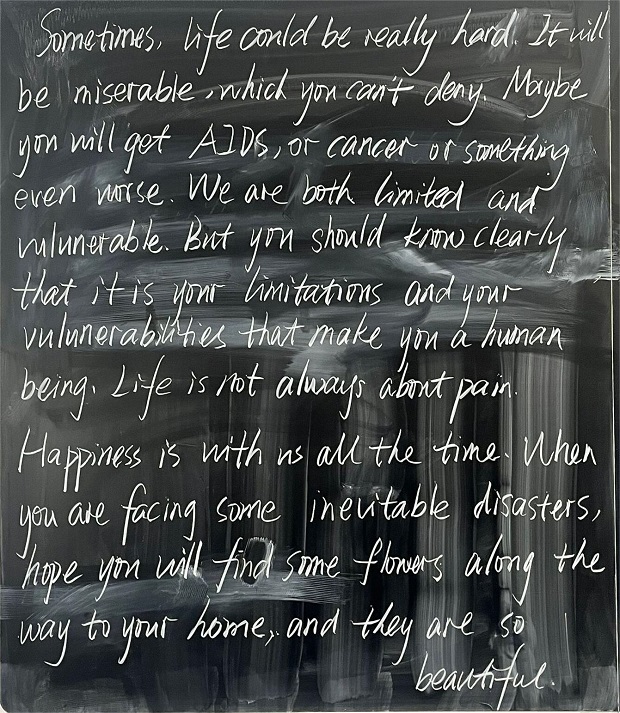 Sometimes, life could be really hard. It will
be miserable, which you can't deny. Maybe
you will get AIDS, or cancer or something
even worse. We are both limited and
vulunerable. But you should know clearly
that it is your limitations and your
vulunerabilities that make you a human
being. Life is not always about pain.
Happiness is with us all the time. When
you are facing some inevitable disasters,
hope you will find some flowers along the
way to your home, and they are so
beautiful.